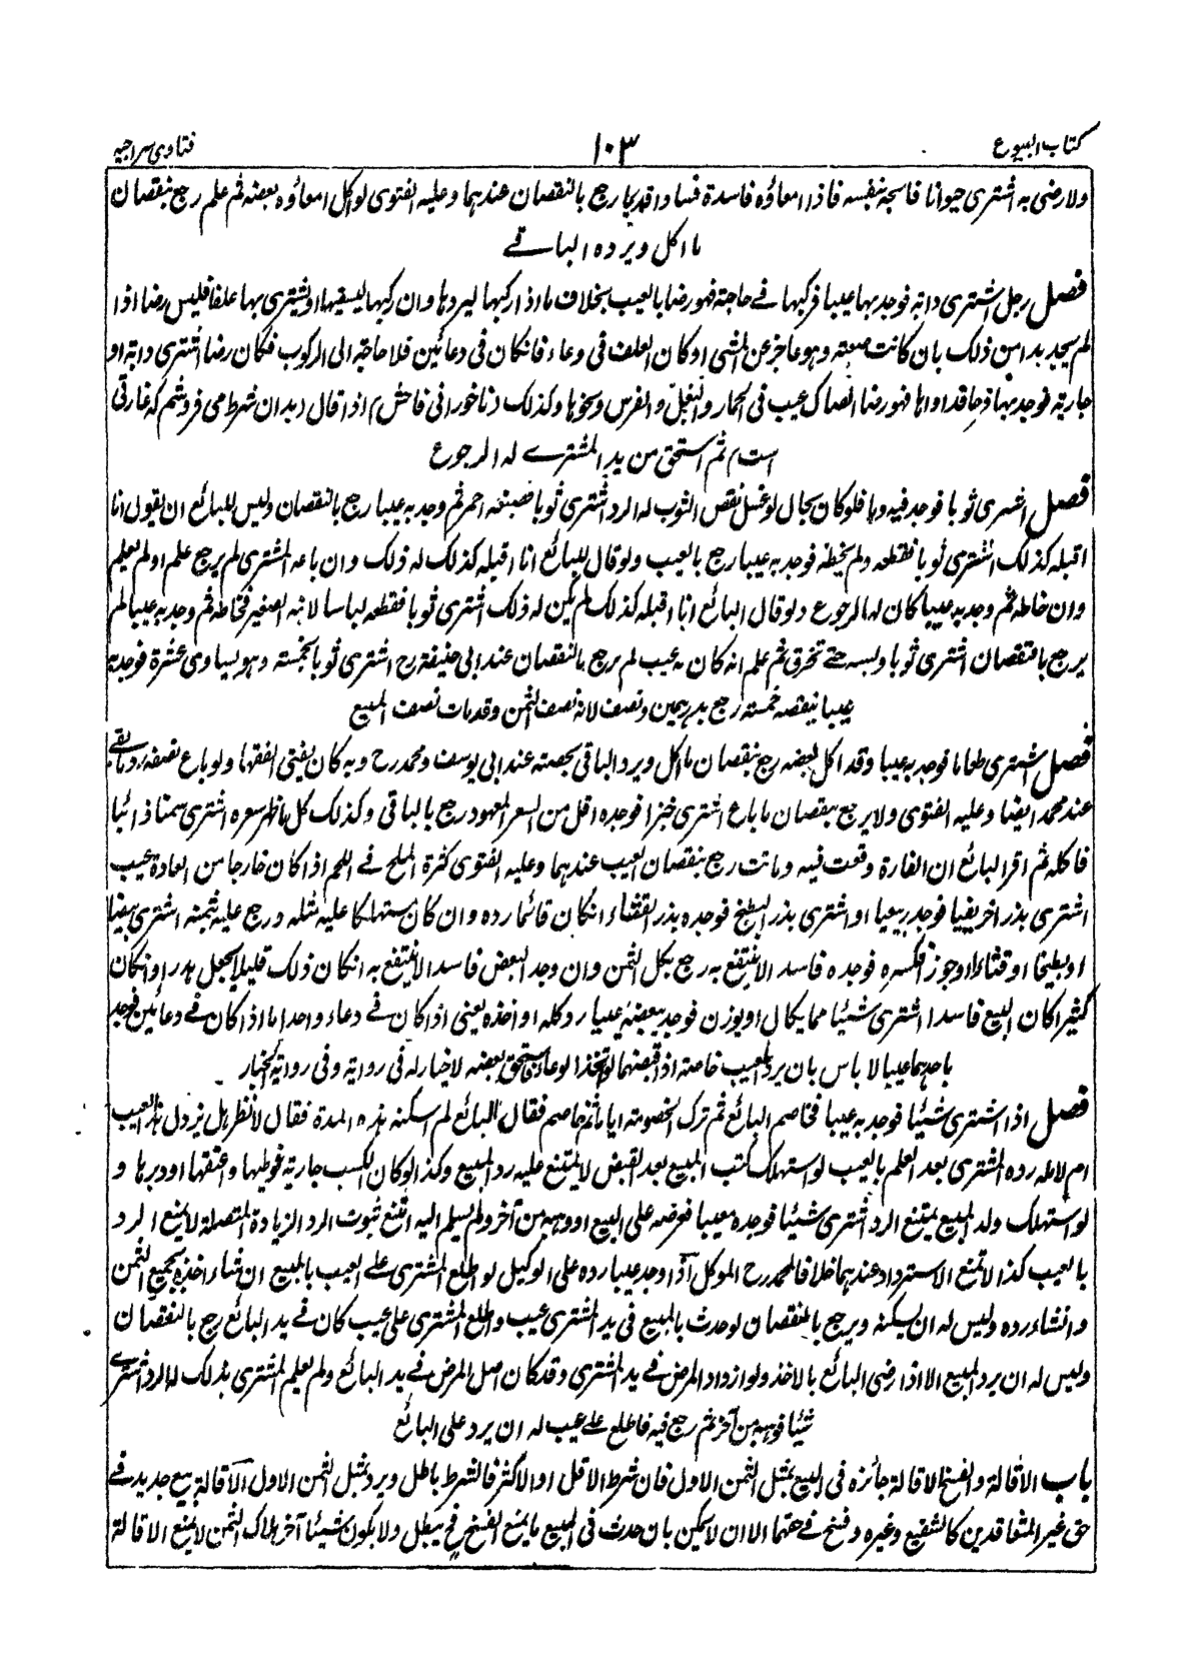 كتاب البيوع
١٠٣
فتاوى سراجيه
ولا رضى به اشترى حيوانا فذبحه بنفسه فاذا امعاؤه فاسدة فسادا قديما رجع بالنقصان عندهما وعليه الفتوى لو اكل امعاؤه بعضه ثم علم رجع بنقصان
ما اكل ويرده الباقى
فصل رجل اشترى دابة فوجد بها عيبا فركبها فى حاجته فهو رضا بالعيب بخلاف ما اذا ركبها ليردها وان ركبها ليسقيها او ليشترى بها علفا فليس رضا اذا
لم يجد بدا من ذلك بان كانت صعبة وهو عاجز عن المشى او كان العلف فى وعاء فان كان فى وعائين فلا حاجة الى الركوب فكان رضا اشترى دابة او
جارية فوجد بها فداواها فهو رضا الصكاك عيب فى الحمار والبغل والفرس ونحوها وكذلك ناخورانى فاحش م اذا قال بدان شرط مى فروشم كه غارتى
است م ثم استحق من يد المشترى له الرجوع
فصل اشترى ثوبا فوجد فيه دما فلو كان بحال لو غسل نقص الثوب له الرد اشترى ثوبا فصبغه احمر ثم وجد به عيبا رجع بالنقصان وليس للبائع ان يقول انا
اقبله كذلك اشترى ثوبا فقطعه ولم يخطه فوجد به عيبا رجع بالعيب ولو قال البائع انا اقبله كذلك له ذلك وان باعه المشترى لم يرجع علم او لم يعلم
وان خاطه ثم وجد به عيبا كان له الرجوع ولو قال البائع انا اقبله كذلك لم يكن له ذلك اشترى ثوبا فقطعه لباسا لابنه الصغير فخاطه ثم وجد به عيبا لم
يرجع بالنقصان اشترى ثوبا ولبسه حتى تخرق ثم علم انه كان به عيب لم يرجع بالنقصان عند ابى حنيفة رح اشترى ثوبا بخمسة وهو يساوى عشرة فوجد به
عيبا ينقصه خمسة رجع بدرهمين ونصف لانه نصف الثمن وقد مات نصف المبيع
فصل اشترى طعاما فوجد به عيبا وقد اكل بعضه رجع بنقصان ما اكل ويرد الباقى بحصته عند ابى يوسف ومحمد رح وبه كان يفتى الفقهاء ولو باع نصفه رد ما بقى
عند محمد ايضا وعليه الفتوى ولا يرجع بنقصان ما باع اشترى خبزا فوجده اقل من السعر المعهود رجع بالباقى وكذلك كل ما ظهر سعره اشترى سمنا ذائبا
فاكله ثم اقر البائع ان الفارة وقعت فيه وماتت رجع بنقصان العيب عندهما وعليه الفتوى كثرة الملح فى اللحم اذا كان خارجا من العادة عيب
اشترى بذرا خريفيا فوجد ربيعيا او اشترى بذر البطيخ فوجده بذر القثاء ان كان قائما رده وان كان مستهلكا عليه مثله ورجع عليه بثمنه اشترى بيضا
او بطيخا او قثاء او جوزا فكسره فوجده فاسدا لا ينتفع به رجع بكل الثمن وان وجد البعض فاسدا لا ينتفع به ان كان ذلك قليلا يجعل هدرا وان كان
كثيرا كان البيع فاسدا اشترى شيئا مما يكال او يوزن فوجد ببعضه عيبا رد كله او اخذه يعنى اذا كان فى وعاء واحد اما اذا كان فى وعائين فوجد
باحدهما عيبا لا باس بان يرد المعيب خاصة اذا قبضهما استحق بعضه لا خيار له فى رواية وفى رواية الخيار
فصل اذا اشترى شيئا فوجد به عيبا فخاصم البائع ثم ترك الخصومة اياما ثم خاصم فقال البائع لم اسكنه هذه المدة فقال لانظر هل يزول هذا العيب
ام لا له رده المشترى بعد العلم بالعيب لو استهلك كسب المبيع بعد القبض لا يمتنع عليه رد المبيع وكذا لو كان الكسب جارية فوطيها او اعتقها او دبرها و
لو استهلك ولد المبيع يمتنع الرد اشترى شيئا فوجده معيبا فعرضه على البيع او وهبه من آخر ولم يسلم اليه امتنع ثبوت الرد الزيادة المتصلة لا يمنع الرد
بالعيب كذا لا تمنع الاسترداد عندهما خلافا لمحمد رح الموكل اذا وجد عيبا رده على الوكيل لو اطلع المشترى على العيب بالمبيع ان شاء اخذه بجميع الثمن
وان شاء رده وليس له ان يمسكه ويرجع بالنقصان لو حدث بالمبيع فى يد المشترى عيب واطلع المشترى على عيب كان فى يد البائع رجع بالنقصان
وليس له ان يرد المبيع الا اذا رضى البائع بالاخذ ولو ازداد المرض فى يد المشترى وقد كان اصل المرض فى يد البائع ولم يعلم المشترى بذلك له الرد اشترى
شيئا فوهبه من آخر ثم رجع فيه فاطلع على عيب له ان يرد على البائع
باب الاقالة والفسخ الاقالة جائزة فى البيع بمثل الثمن الاول فان شرط الاقل او الاكثر فالشرط باطل ويرد بمثل الثمن الاول الاقالة بيع جديد فى
حق غير المتعاقدين كالشفيع وغيره وفسخ فى حقهما الا ان لا يمكن بان حدث فى المبيع ما يمنع الفسخ فح يبطل ولا يكون شيئا آخر هلاك الثمن لا يمنع الاقالة